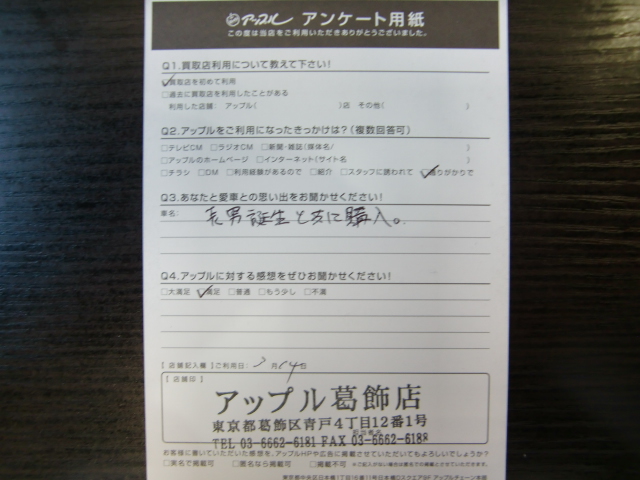 アップル アンケート用紙
この度は当店をご利用いただきありがとうございました。
Q1.買取店利用について教えて下さい!
☑買取店を初めて利用
□過去に買取店を利用したことがある
利用した店舗: アップル( )店 その他( )
Q2.アップルをご利用になったきっかけは?(複数回答可)
□テレビCM □ラジオCM □新聞・雑誌(媒体名/ )
□アップルのホームページ □インターネット(サイト名 )
□チラシ □DM □利用経験があるので □紹介 □スタッフに誘われて ☑通りがかりで
Q3.あなたと愛車との思い出をお聞かせください!
車名: 長男誕生と共に購入。
Q4.アップルに対する感想をぜひお聞かせください!
□大満足 ☑満足 □普通 □もう少し □不満
【店舗記入欄】ご利用日: 月14日
【店舗印】
アップル葛飾店
東京都葛飾区青戸4丁目12番1号
担当者名
TEL 03-6662-6181 FAX 03-6662-6188
お客様に書いていただいた感想を、アップルHPや広告に掲載させていただいてもよろしいでしょうか?
□実名で掲載可 □匿名なら掲載可 □掲載不可 ※ご記入がない場合は匿名での掲載とさせていただきます。